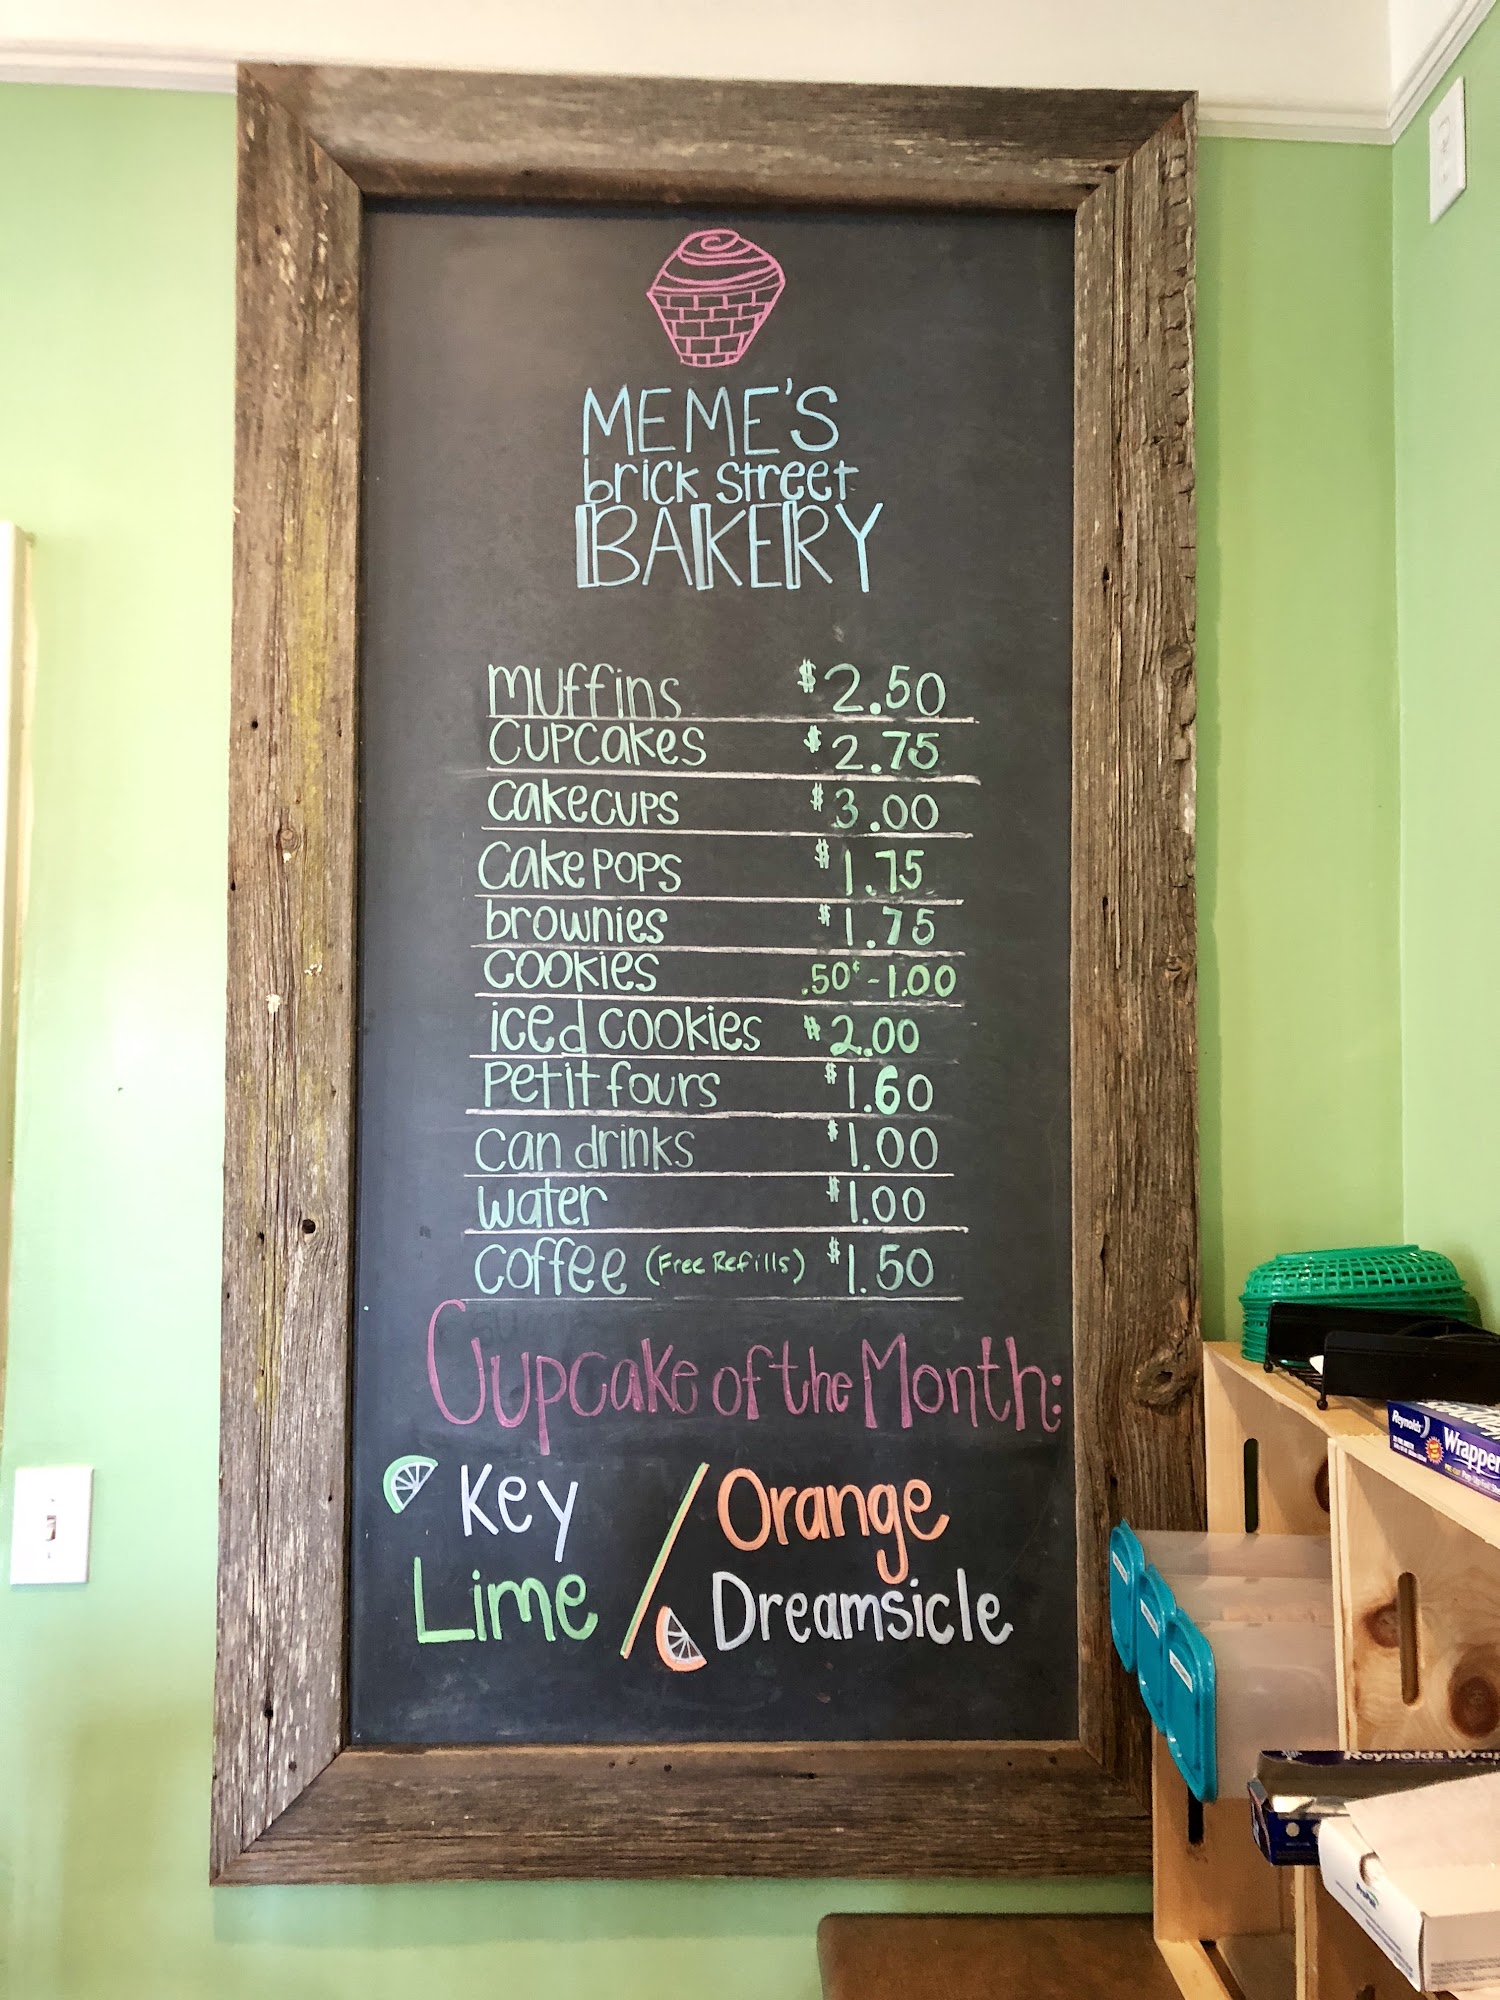 MEME'S
brick street
BAKERY
muffins $2.50
CUPCakes $2.75
cakecups $3.00
cake pops $1.75
brownies $1.75
cookies .50¢-1.00
iced cookies $2.00
petit fours $1.60
can drinks $1.00
water $1.00
coffee (Free Refills) $1.50
Cupcake of the Month:
Key Lime / Orange Dreamsicle
Reynolds
Wrappers
Reynolds Wrap